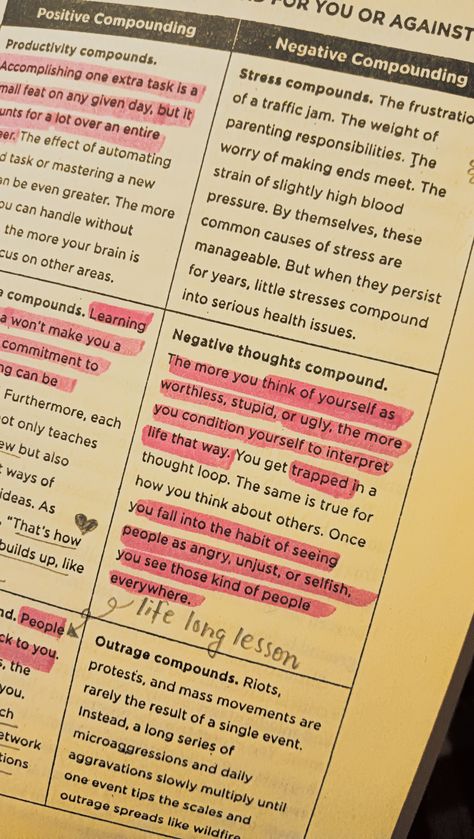 FOR YOU OR AGAINST
Positive Compounding
Productivity compounds.
Accomplishing one extra task is a
small feat on any given day, but it
unts for a lot over an entire
eer. The effect of automating
d task or mastering a new
an be even greater. The more
ou can handle without
, the more your brain is
cus on other areas.
e compounds. Learning
a won't make you a
commitment to
ng can be
Furthermore, each
not only teaches
ew but also
t ways of
ideas. As
"That's how
builds up, like
nd. People
ck to you.
s, the
you.
ch
etwork
tions
Negative Compounding
Stress compounds. The frustratio
of a traffic jam. The weight of
parenting responsibilities. The
worry of making ends meet. The
strain of slightly high blood
pressure. By themselves, these
common causes of stress are
manageable. But when they persist
for years, little stresses compound
into serious health issues.
Negative thoughts compound.
The more you think of yourself as
worthless, stupid, or ugly, the more
you condition yourself to interpret
life that way. You get trapped in a
thought loop. The same is true for
how you think about others. Once
you fall into the habit of seeing
people as angry, unjust, or selfish,
you see those kind of people
everywhere.
life long lesson
Outrage compounds. Riots,
protests, and mass movements are
rarely the result of a single event.
Instead, a long series of
microaggressions and daily
aggravations slowly multiply until
one event tips the scales and
outrage spreads like wildfire